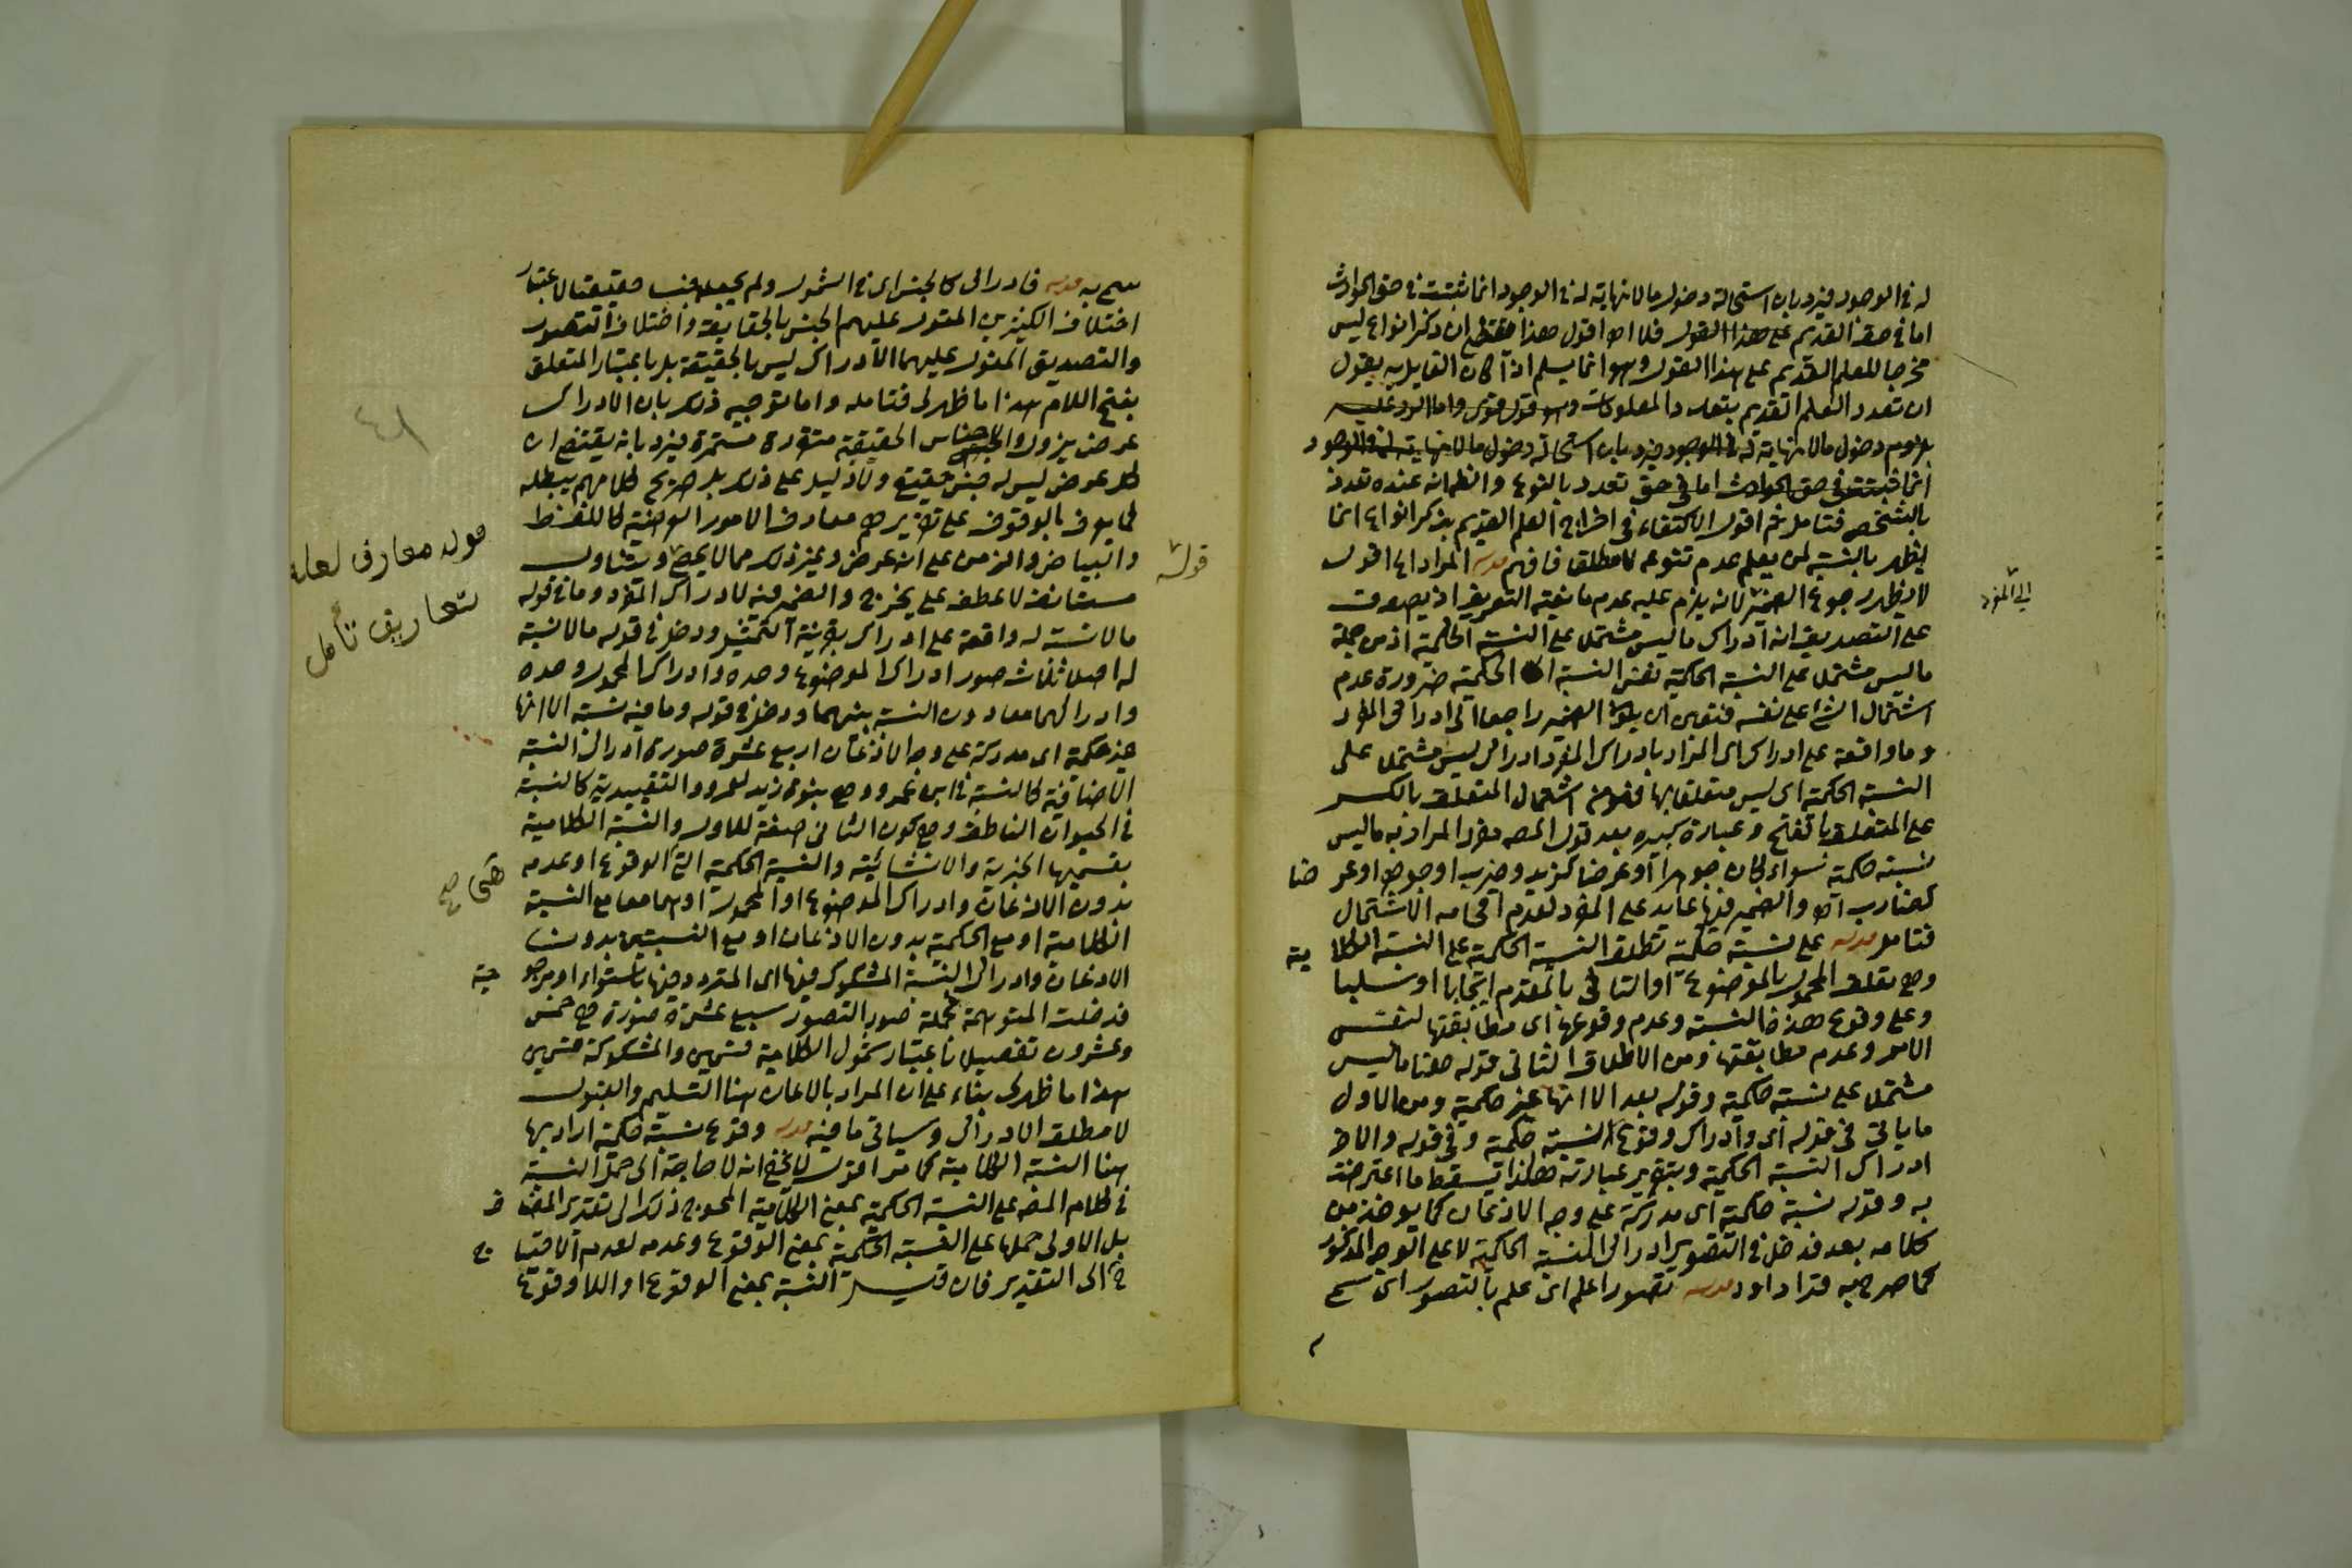 له في الوجود فيرد بان استحالة دخول مالا نهاية له في الوجود انما ثبتت في حق الحوادث
اما في حق القديم على هذا القول فلا اه اقول هذا ان ذكر انواع ليس
مخرجا للعلم القديم على هذا القول وهو انما يسلم اذا كان القايل به يقول
ان تعدد العلم القديم بتعدد المعلومات وهو قول قوى واما الرد عليه
بلزوم دخول مالا نهاية له في الوجود فيرد بان استحالة دخول مالا نهاية له في الوجود
انما ثبتت في حق الحوادث اما في حق تعدد بالنوع وانظر انه عنده تعدد
بالشخص فتامل ثم اقول الاكتفاء في اخراج العلم القديم بذكر انواع انما
يظهر بالنسبة لمن يعلم عدم تنوعه لا مطلقا فافهم قوله المراد اه اقول
لا يظهر رجوع الضمير لانه يلزم عليه عدم مانعية التعريف اذ يصدق
الى المفرد
على التصديق انه ادراك ما ليس مشتملا على النسبة الحكمية اذ من جملة
ما ليس مشتملا على النسبة الحكمية نفس النسبة الحكمية ضرورة عدم
اشتمال الشئ على نفسه فتعين ان يكون الضمير راجعا الى ادراك المفرد
وما واقعة على ادراك اى المراد بادراك المفرد ادراك ليس مشتملا على
النسبة الحكمية اى ليس متعلقا بها فهو من اشتمال المتعلق بالكسر
على المتعلق بالفتح وعبارة كبيره بعد قول المصه مفرد المراد به ما ليس
نسبة حكمية سواء كان جوهرا او عرضا كزيد وضرب او جوهرا وعرضا
كضارب اه والضمير فيها عايد على المفرد لعدم اقحامه الاشتمال
فتامل قوله على نسبة حكمية تطلق النسبة الحكمية على النسبة الكلامية
وهي تعلق المحمول بالموضوع او التالى بالمقدم ايجابا او سلبا
وعلى وقوع هذه النسبة وعدم وقوعها اى مطابقتها لنفس
الامر وعدم مطابقتها ومن الاطلاق الثانى قوله هنا ما ليس
مشتملا على نسبة حكمية وقوله بعد الا انها غير حكمية ومن الاول
ما ياتى في قوله اى وادراك وقوع النسبة حكمية وفي قوله والاخر
ادراك النسبة الحكمية وبتقرير عبارته هكذا يسقط ما اعترضت
به وقوله نسبة حكمية اى مدركة على وجه الاذعان كما يوخذ من
كلامه بعد فدخل في التصور ادراك النسبة الحكمية لا على الوجه المذكور
كما صرح به قرا داود قوله تصورا علم اى علم بالتصور اى سمى
سمى به قوله فادراك كالجنس اى في الشمول ولم يجعله جنسا حقيقيا لاعتبار
اختلاف الكثيرين المقول عليهم الجنس بالحقايق واختلاف التصور
والتصديق المقول عليهما الادراك ليس بالحقيقة بل باعتبار المتعلق
بفتح اللام هذا ما ظهر لى فتامله واما توجيه ذلك بان الادراك
عرض يزول والاجناس الحقيقية متقررة مستمرة فيرد بانه يقتضى ان
كل عرض ليس له جنس حقيقى ولا دليل على ذلك بل صريح كلامهم يبطله
كما يعرف بالوقوف على تقريرهم معارف الامور العرضية كاللفظ
قوله معارف لعله
تعاريف تأمل
والبياض والزمن على انه عرض وغير ذلك مما لا يحصى
قوله
مستانفة لا عطف على يخرج والضمير فيه لادراك المفرد وما في قوله
مالا نسبة له واقعة على ادراك بقرينة التمثيل ودخل في قوله مالا نسبة
له اصلا ثلاث صور ادراك الموضوع وحده وادراك المحمول وحده
وادراكهما معا دون النسبة بينهما ودخل في قوله وما فيه نسبة الا انها
غير حكمية اى مدركة على وجه الاذعان اربع عشرة صورة ادراك النسبة
الاضافية كالنسبة في ابن عمرو وهي بنوة زيد لعمرو والتقييدية كالنسبة
في الحيوان الناطق وهي كون الثانى صفة للاول والنسبة الكلامية
بقسميها الخبرية والانشائية والنسبة الحكمية التى الوقوع او عدمه
هى صح
بدون الاذعان وادراك الموضوع او المحمول او هما معا مع النسبة
الكلامية او مع الحكمية بدون الاذعان او مع النسبتين بدون
الاذعان وادراك النسبة المشكوك فيها اى المتردد فيها باستواء او مرجوحية
فدخلت المتوهمة فجملة صور التصور سبع عشرة صورة هي خمس
وعشرون تفصيلا باعتبار شمول الكلامية قسمين والمشكوكة قسمين
هذا ما ظهر لى بناء على ان المراد بالاذعان هنا التسليم والقبول
لا مطلق الادراك وسياتى ما فيه قوله وقوع نسبة حكمية اراد بها
هنا النسبة الكلامية كما مر اقول لا يخفى انه لا حاجة الى حمل النسبة
في كلام المصه على النسبة الحكمية بمعنى الكلامية المحوج ذلك الى تقدير المضاف
بل الاولى حملها على النسبة الحكمية بمعنى الوقوع وعدمه لعدم الاحتياج
ح الى التقدير فان قيل النسبة بمعنى الوقوع او اللاوقوع